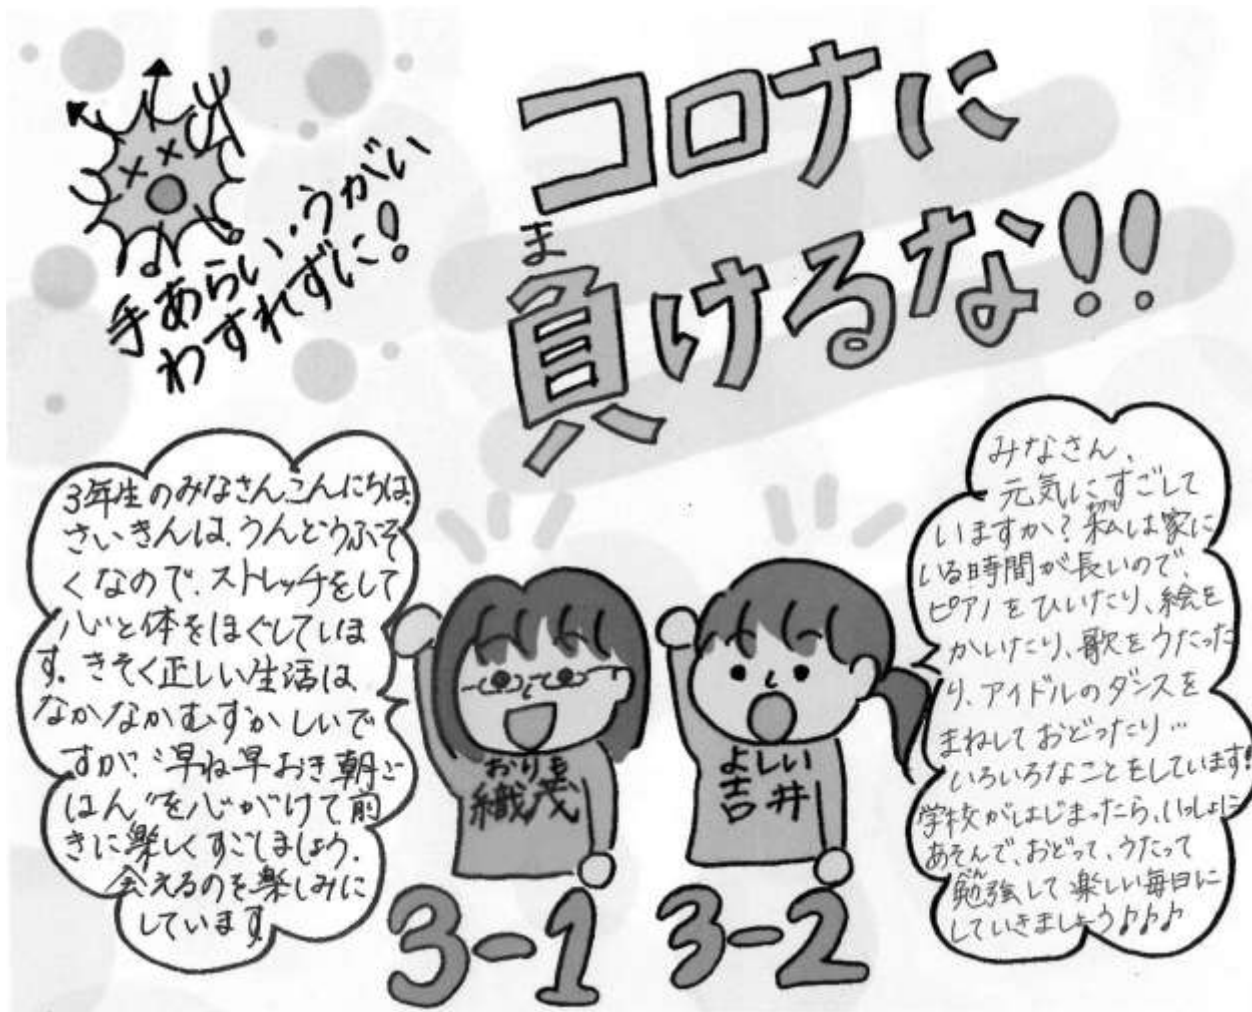 コロナに
ま
負けるな!!
手あらい・うがい
わすれずに!
3年生のみなさん、こんにちは。
さいきんは、うんどうぶそ
くなので、ストレッチをして
心と体をほぐしていま
す。きそく正しい生活は
なかなかむずかしいで
すが、“早ね早おき朝ご
はん”を心がけて前
きに楽しくすごしましょう。
会えるのを楽しみに
しています
みなさん、
元気にすごして
いますか?私は家に
いる時間が長いので、
ピアノをひいたり、絵を
かいたり、歌をうたった
り、アイドルのダンスを
まねしておどったり…
いろいろなことをしています!
学校がはじまったら、いっしょに
あそんで、おどって、うたって
勉強して楽しい毎日に
していきましょう♪♪♪
おりも
織茂
よしい
吉井
3-1
3-2